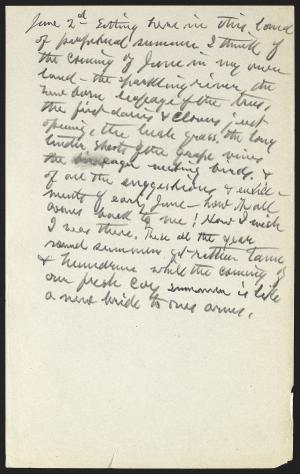 June 2d - Sitting here in this land
of perpetual summer I think of
the coming of June in my own
land - the sparkling river, the
new born leafage of the trees,
the first daisies & clovers just
opening, the lush grass, the long
tender shoots of the grape vines
the eager nesting birds, &
of all the suggestions & entice-
ments of early June - how it all
comes back to me! How I wish
I was there. These all the year
round summers get rather tame
& humdrum while the coming of
our fresh coy summer is like
a new bride to ones arms.